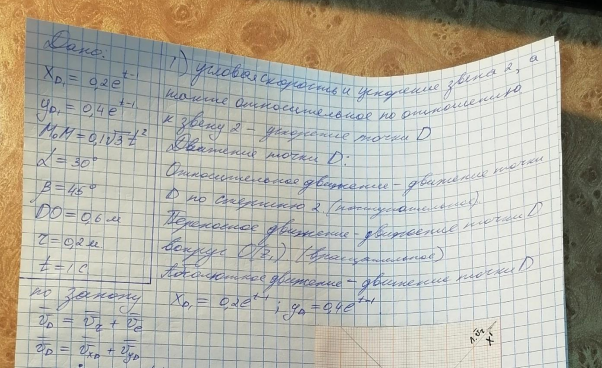 Дано:
X_D₁ = 0,2e^(t-1)
y_D₁ = 0,4e^(t-1)
M₀M = 0,1√3 t²
α = 30°
β = 45°
DO = 0,6 м
r = 0,2 м
t = 1 с
по закону
v̄_D = v̄_r + v̄_e
v̄_D = v̄_xD + v̄_yD
1) угловая скорость и ускорение звена 2, а
также относительное по отношению
к звену 2 - ускорение точки D
Движение точки D:
Относительное движение - движение точки
D по стержню 2 (поступательное).
Переносное движение - движение точки D
вокруг O(Z₁) (вращательное)
Абсолютное движение - движение точки D
X_D₁ = 0,2e^(t-1); y_D₁ = 0,4e^(t-1)